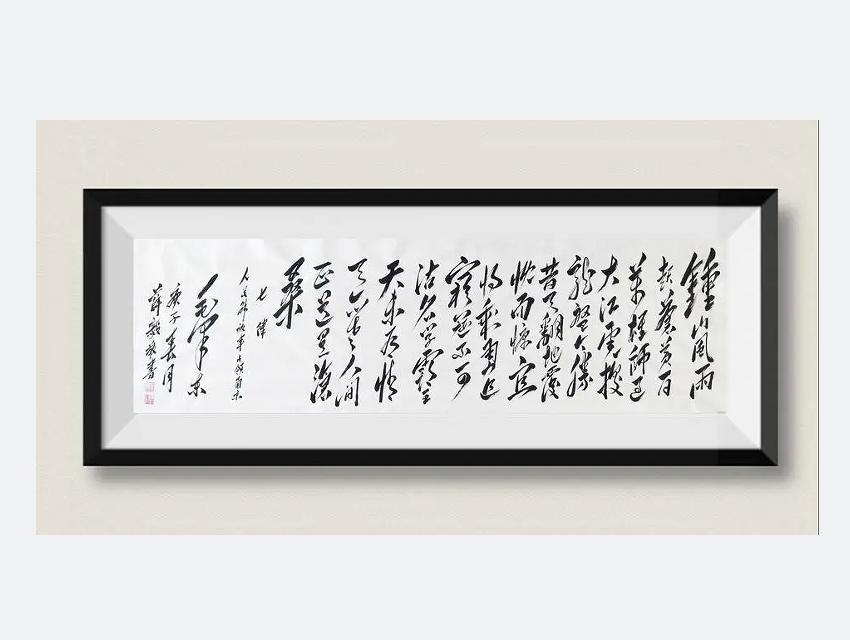 鍾山風雨
起蒼黄百
萬雄師過
大江虎踞
龍盤今勝
昔天翻地覆
慨而慷宜
将剩勇追
窮寇不可
沽名学霸王
天若有情
天亦老人间
正道是滄
桑
七律
人民解放军占领南京
毛泽东
庚子春月
薛 書